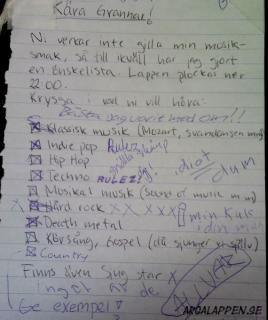 Kära Grannar!
Ni verkar inte gilla min musik-
smak, så till ikväll har jag gjort
en önskelista. Lappen plockas ner
22:00.
Kryssa i vad ni vill höra:
Klassisk musik (Mozart, Svandansen mm)
Indie pop Rulez
Hip Hop
Techno RULEZ!
idiot
dum
Musikal musik (Sound of music m m)
Hård rock X X X X X
min kuk
din mus
Death metal
Körsång, Gospel (då sjunger vi själv)
Country
Finns även Sing star
inget av de
Ge exempel!
ALLVAR
ARGALAPPEN.SE